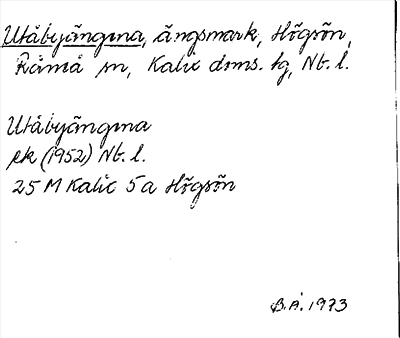 Utåbyängena, ängsmark, Högsön,
Råneå sn, Kalix doms. tg, Nb. l.
Utåbyängena
ek (1952) Nb. l.
25 M Kalix 5a Högsön
B.Å. 1973